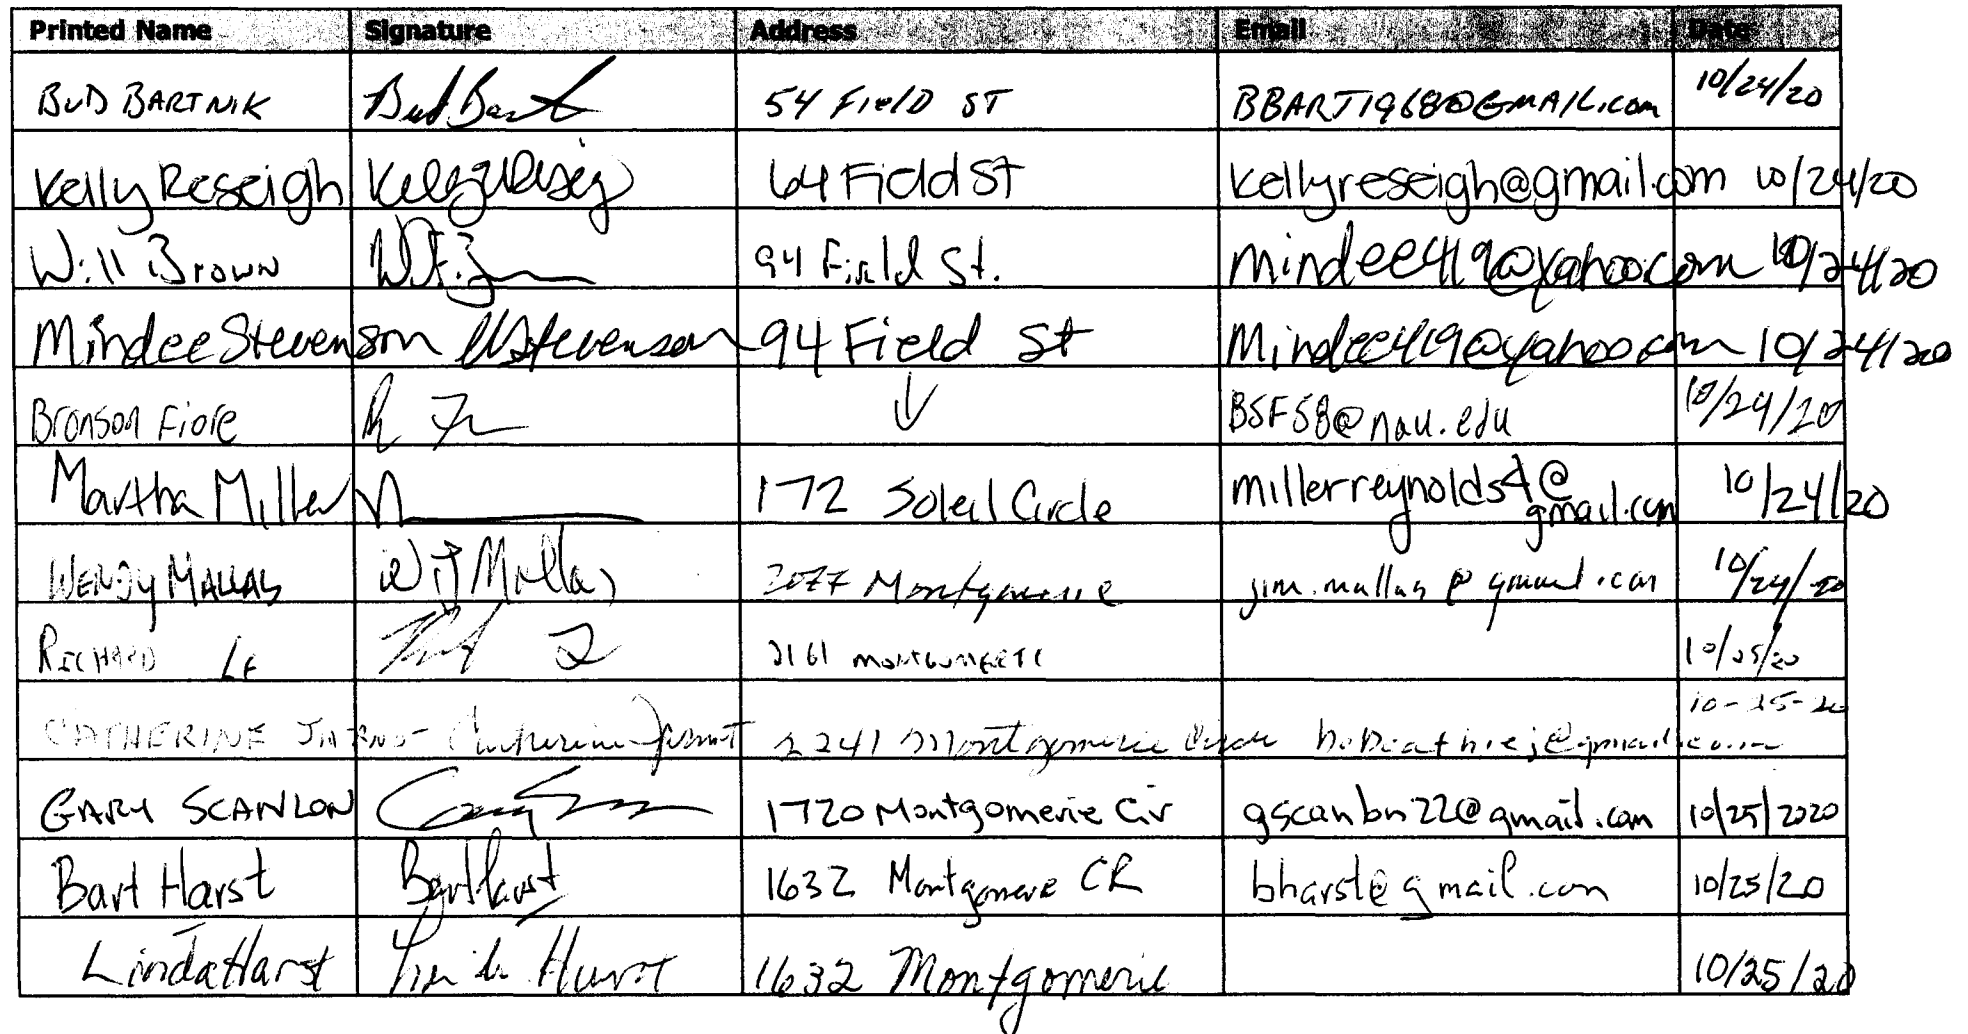 Printed Name Signature Address Email Date
BUD BARTNIK Bud Bart 54 FIELD ST BBART1968@GMAIL.com 10/24/20
Kelly Reseigh 64 Field St kellyreseigh@gmail.com 10/24/20
Will Brown 94 Field St. mindee419@yahoo.com 10/24/20
Mindee Stevenson MStevenson 94 Field St Mindee419@yahoo.com 10/24/20
Bronson Fiore ↓ BSF58@nau.edu 10/24/20
Martha Miller 172 Soleil Circle millerreynolds4@
gmail.com 10/24/20
WENDY MALLAS Mallas 2077 Montgomerie jim.mallas@gmail.com 10/24/20
RICHARD 2161 MONTGOMERIE 10/25/20
CATHERINE Catherine 2241 Montgomerie Circle 10-25-20
GARY SCANLON 1720 Montgomerie Cir gscanlon22@gmail.com 10/25/2020
Bart Harst Bart Harst 1632 Montgomerie CR bharst@gmail.com 10/25/20
Linda Harst Linda Harst 1632 Montgomerie 10/25/20